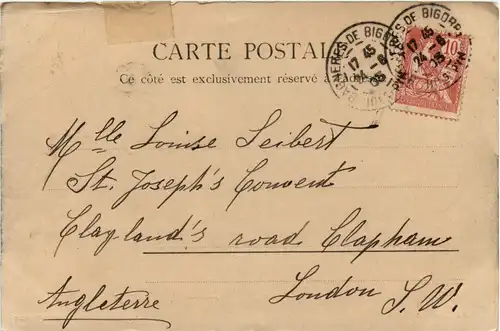 CARTE POSTALE
Ce côté est exclusivement réservé à l'adresse
BAGNÈRES DE BIGORRE
17 45
24 - 6
03
BAGNÈRES DE BIGORRE
17 45
24 - 6
03
10
Mlle Louise Seibert
St. Joseph's Convent
Clayland's road Clapham
London S. W.
Angleterre